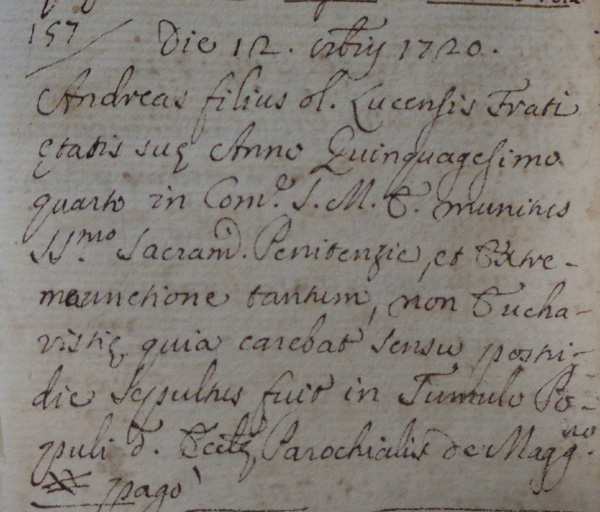 157 Die 12. Xbris 1720.
Andreas filius ol. Lucensis Frati
Etatis suę Anno Quinquagesimo
quarto in Com.e S. M. E. munitus
SS.mo Sacram. Penitenzie, et Extre-
maunctione tantum, non Eucha-
ristię, quia carebat sensu, postri-
die sepultus fuit in Tumulo Po-
puli d. Eccłę Parochialis de Magg.no
pago